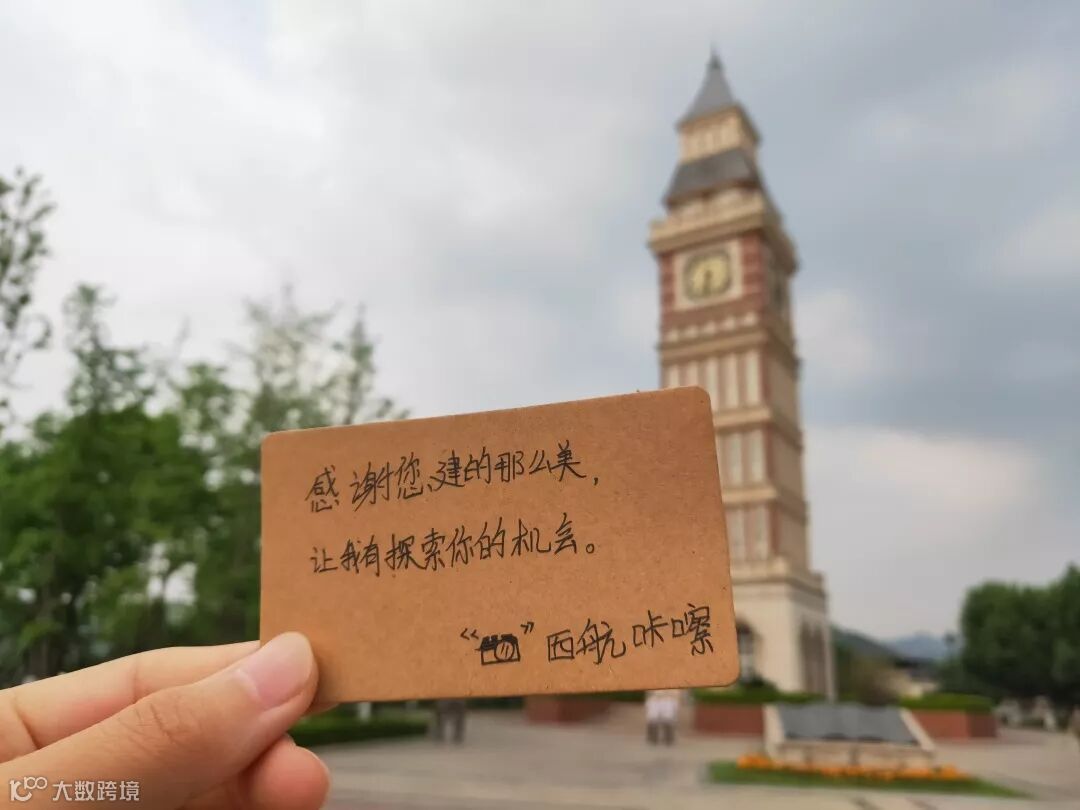 感谢您、建的那么美，
让我有探索你的机会。
“ ” 西航咔嚓
大数跨境